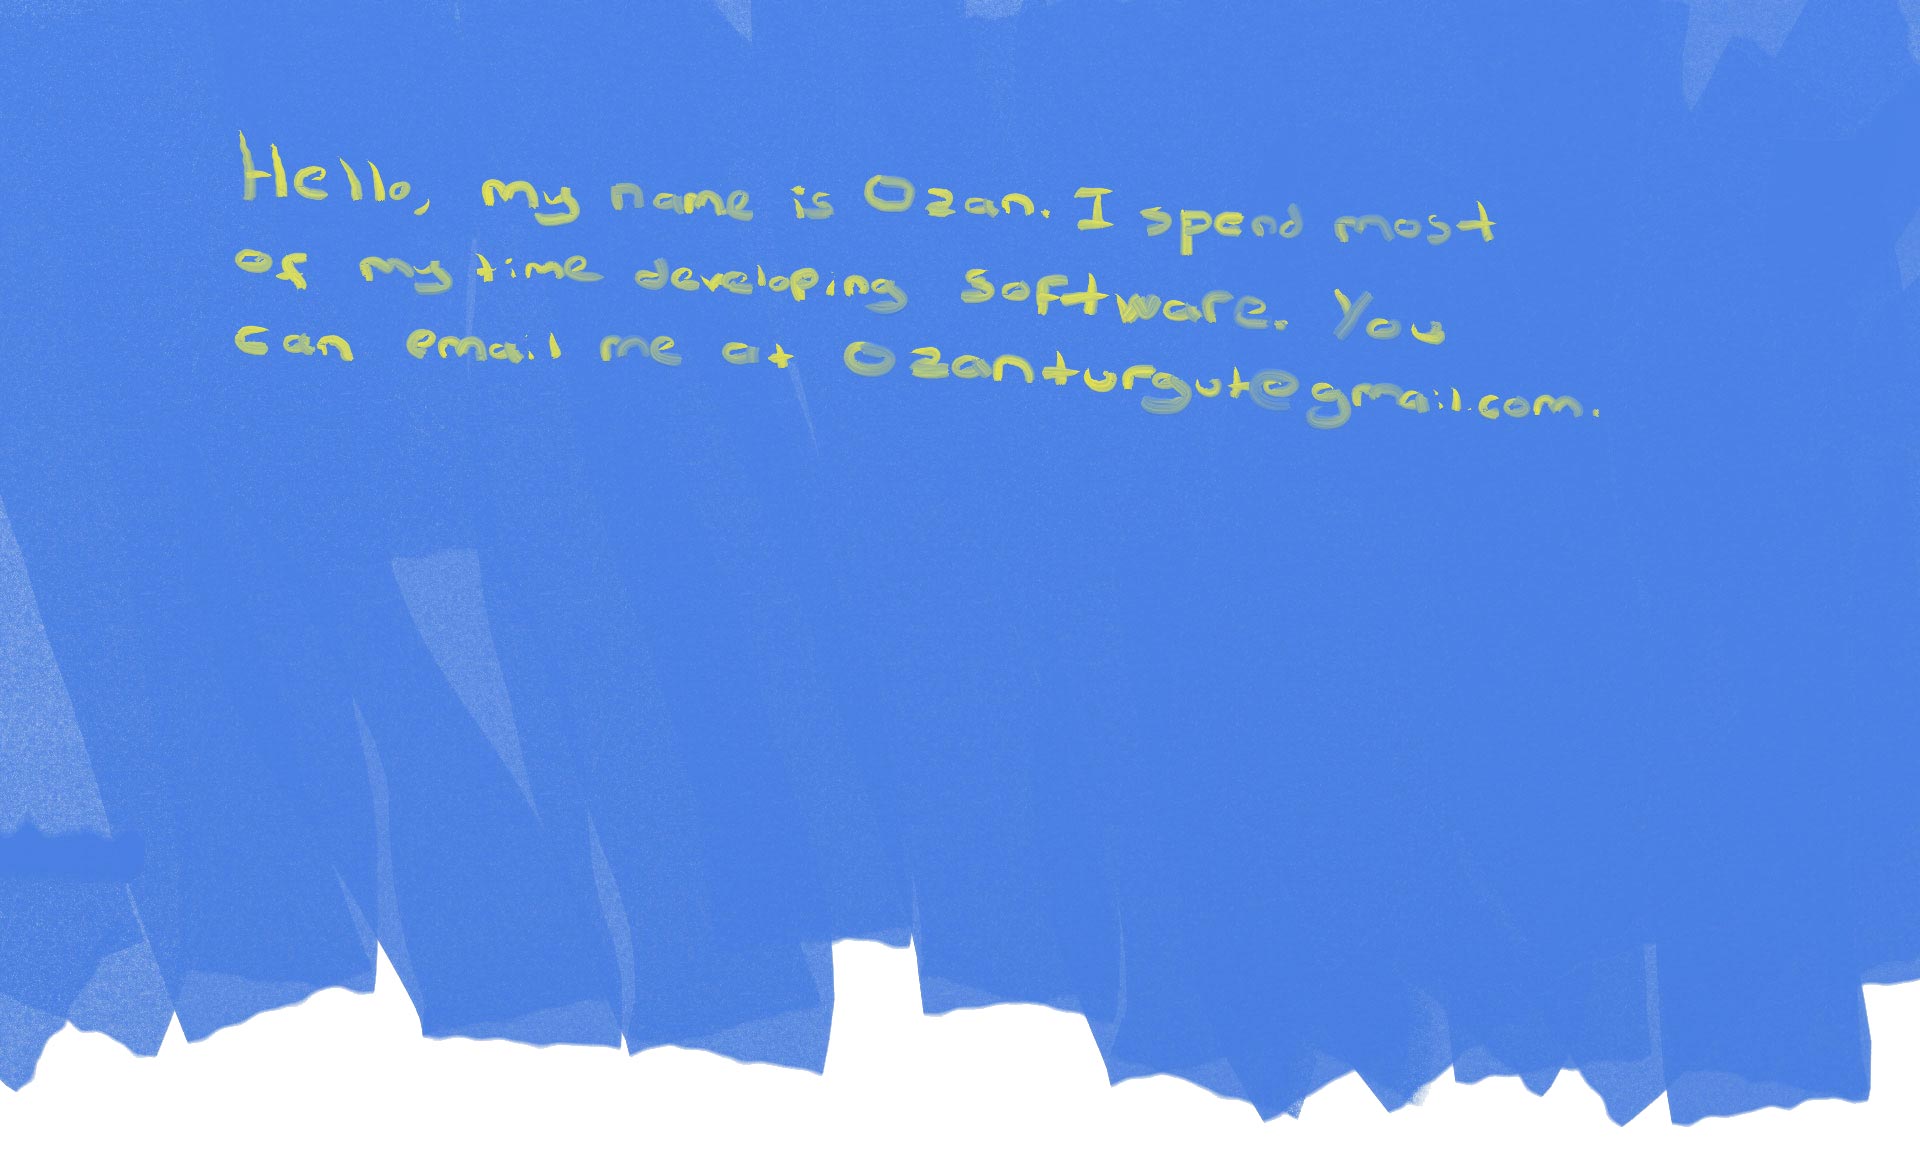 Hello, my name is Ozan. I spend most
of my time developing software. You
can email me at Ozanturgut@gmail.com.